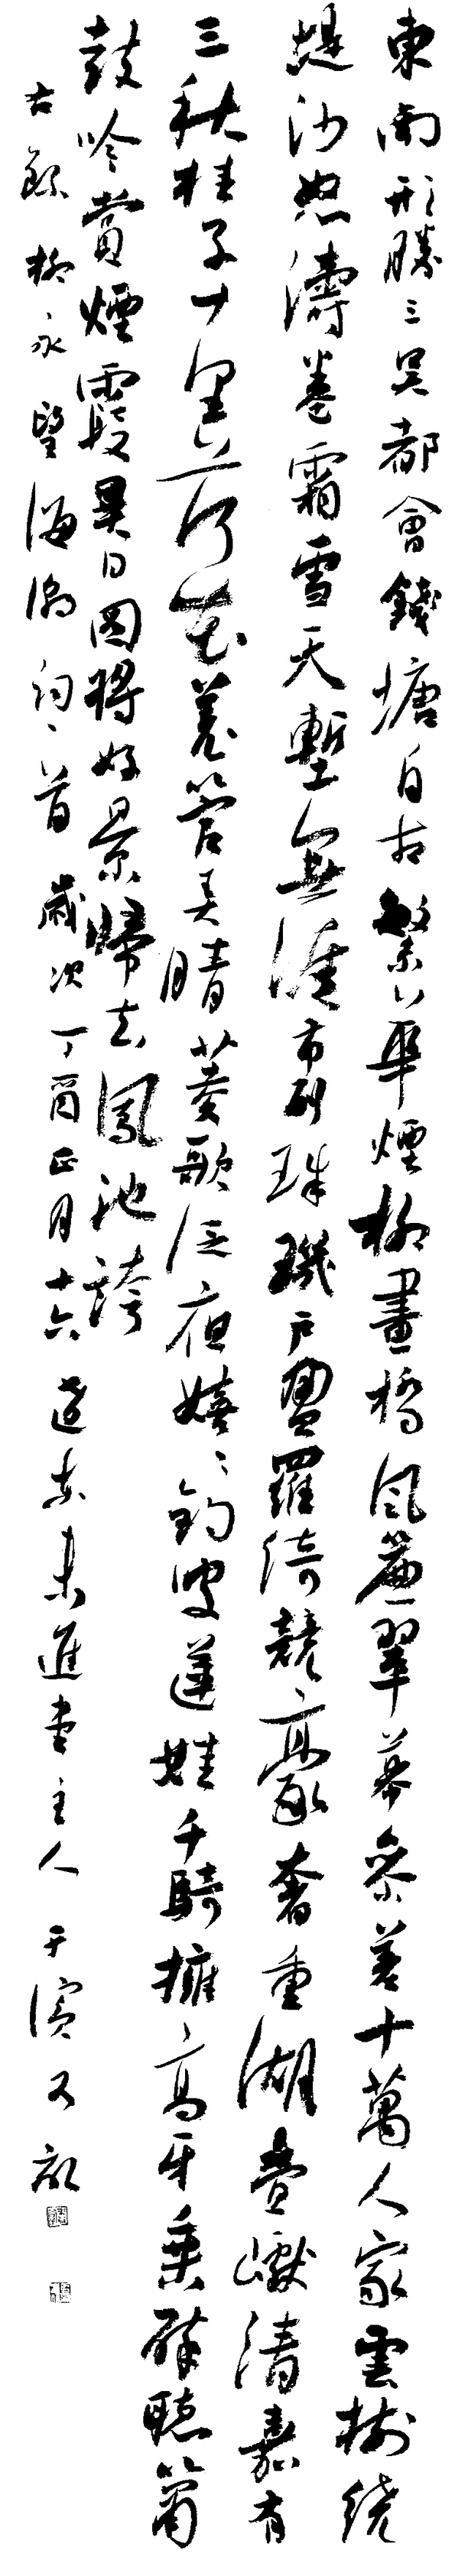 東南形勝三吳都會錢塘自古繁華煙柳畫橋風簾翠幕參差十萬人家雲樹繞
堤沙怒濤卷霜雪天塹無涯市列珠璣戶盈羅綺競豪奢重湖疊巘清嘉有
三秋桂子十里荷花羌管弄晴菱歌泛夜嬉嬉釣叟蓮娃千騎擁高牙乘醉聽簫
鼓吟賞煙霞異日圖將好景歸去鳳池誇
右錄柳永望海潮詞一首 歲次丁酉正月十六 主人 于濱